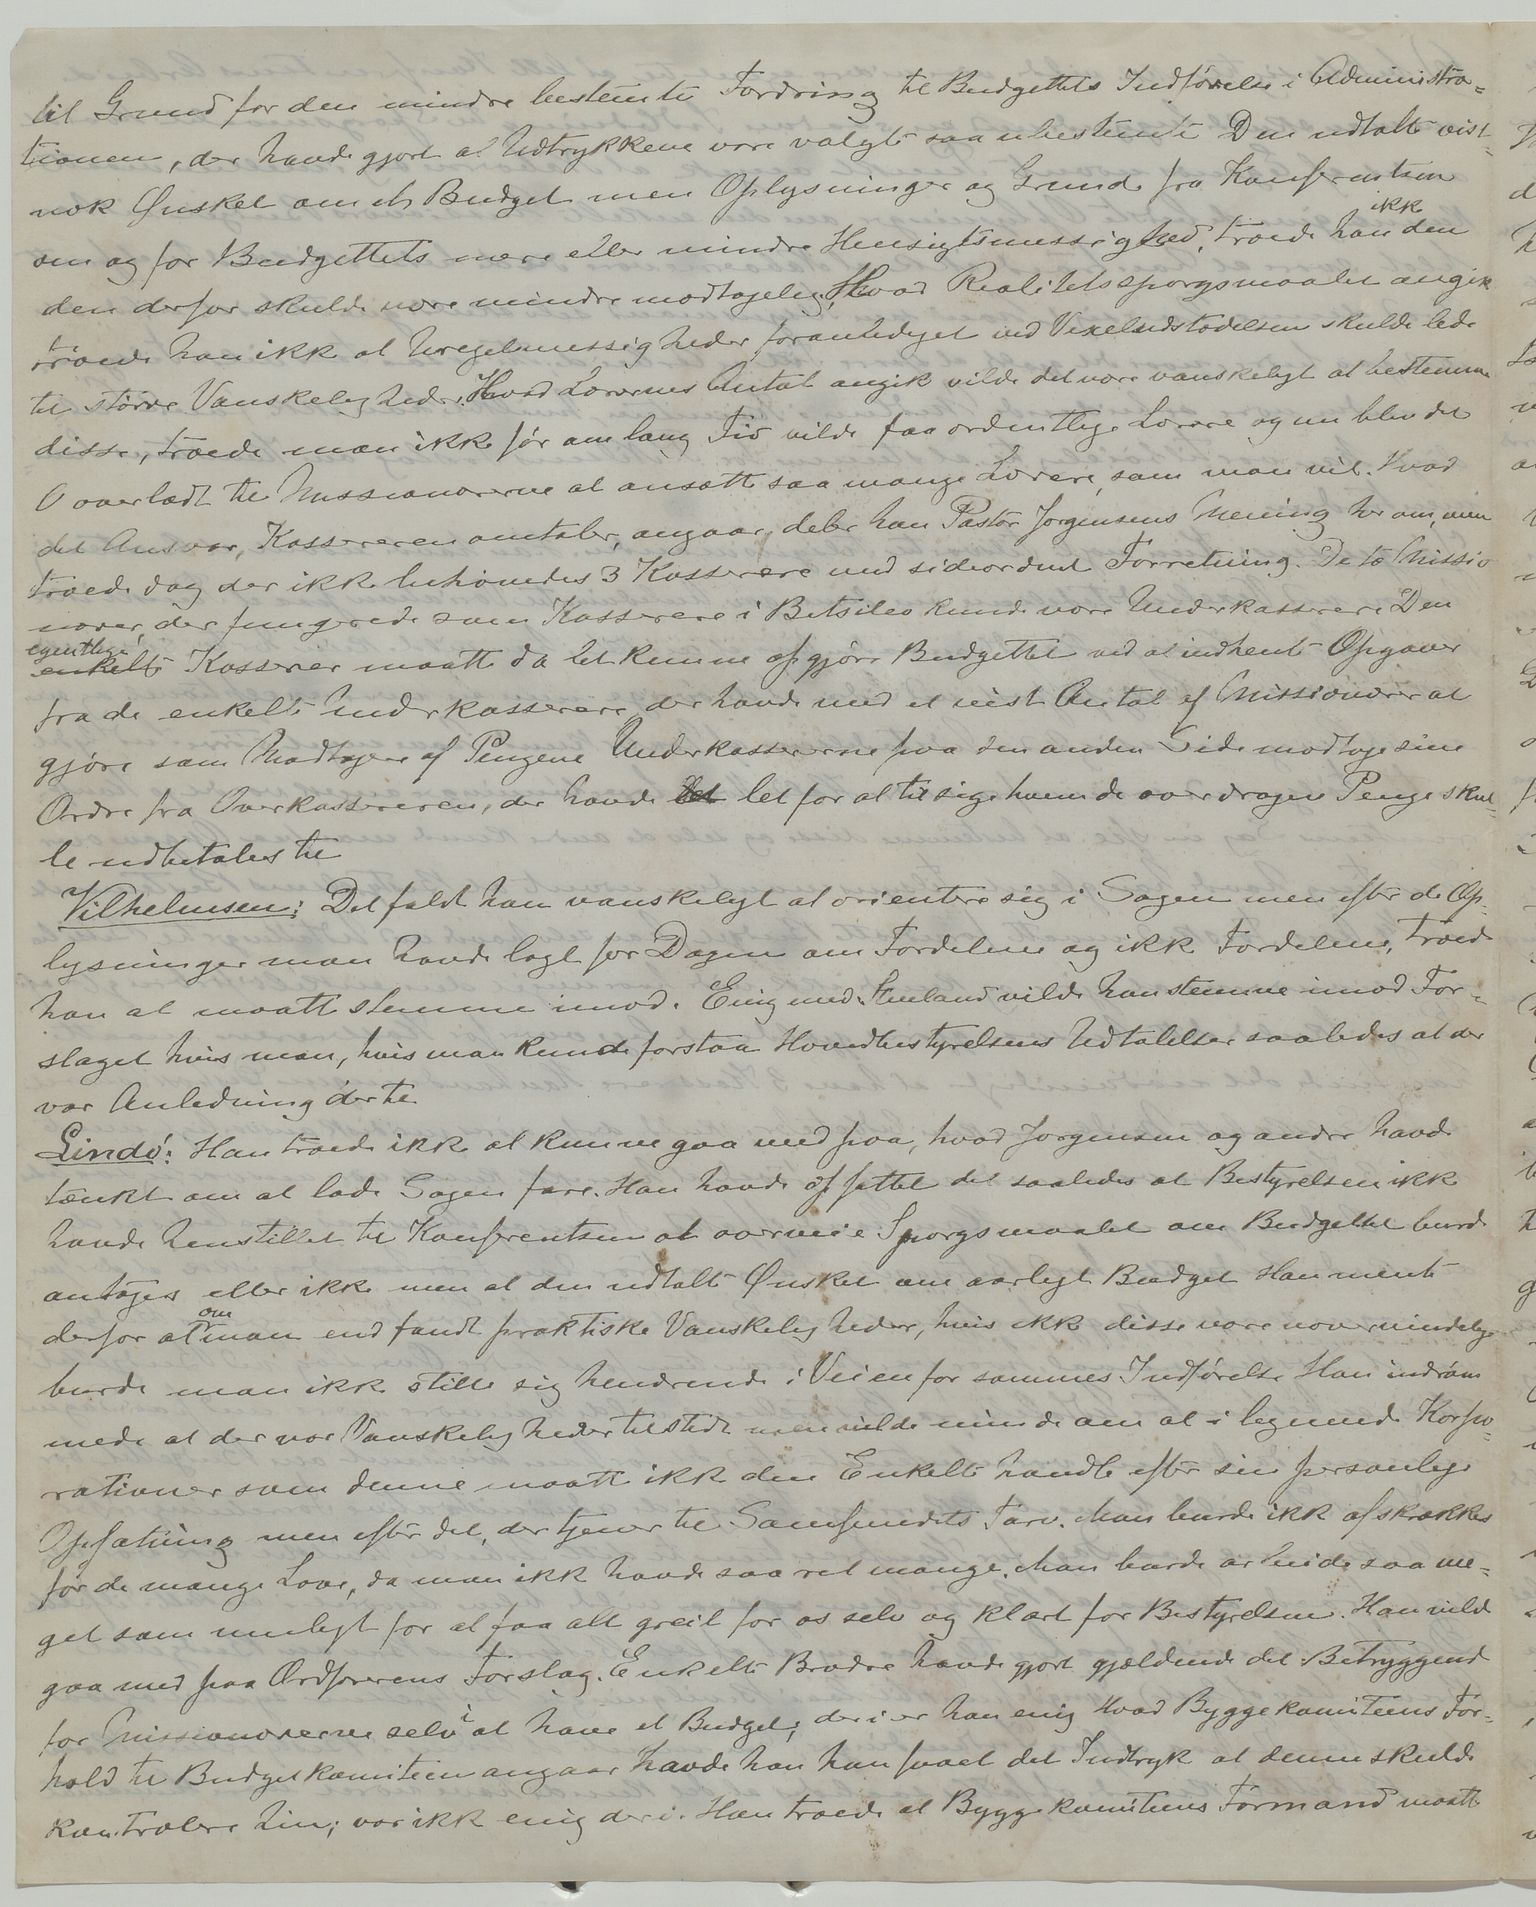 til Grund for den mindre bestemte Fordring til Budgettets Indførelse i Administra-
tionen, der havde gjort at Udtrykkene vare valgte saa ubestemte Den udtalte vist-
nok Ønsket om et Budget men Oplysninger og Grunde fra Konferentsen
om og for Budgettets mere eller mindre Hensigtsmessighed, troede han ikke den
den derfor skulde være mindre modtagelig. Hvad Realitetsspørgsmaalet angik
troede han ikke at Uregelmessigheder foranlediget ved Vexeludstædelsen skulde lede
til større Vanskeligheder. Hvad Lærernes Antal angik vilde det være vanskeligt at bestemme
disse, troede man ikke før om lang Tid vilde faa ordentlige Lærere og nu blev det
overladt til Missionærerne at ansætte saa mange Lærere, som man vil. Hvad
det Ansvar, Kassereren omtaler, angaar, deler han Pastor Jørgensens Mening her om, men
troede dog der ikke behøvedes 3 Kasserere med sideordnet Forretning. De to Missio
nærer, der fungerede som Kasserere i Betsileo kunde være Underkasserere Den
egentlige
enkelte Kasserer maatte da let kunne opgjøre Budgettet ved at indhente Opgaver
fra de enkelte Underkasserere, der havde med et vist Antal af Missionærer at
gjøre som Modtagere af Pengene Underkassererne paa den anden Side modtage sine
Ordre fra Overkassereren, der havde det let for at tilsige hvem de overdragne Penge skul-
le udbetales til
Vilhelmsen: Det faldt ham vanskeligt at orientere sig i Sagen men efter de Op-
lysninger man havde lagt for Dagen om Fordelene og ikke Fordelene, troede
han at maatte stemme imod. Enig med Stueland vilde han stemme imod For-
slaget hvis man, hvis man kunde forstaa Hovedbestyrelsens Udtalelser saaledes at der
var Anledning dertil
Lindø: Han troede ikke at kunne gaa med paa, hvad Jørgensen og andre havde
tænkt om at lade Sagen fare. Han havde opfattet det saaledes at Bestyrelsen ikke
havde henstillet til Konferentsen at overveie Spørgsmaalet om Budgettet burde
antages eller ikke men at den udtalte Ønsket om aarligt Budget Han mente
derfor at om man end fandt praktiske Vanskeligheder, hvis ikke disse vare uovervindelige
burde man ikke stille sig hindrende i Veien for sammes Indførelse Han indrøm
mede at der var Vanskeligheder tilstede men vilde minde om at i lignende Korpo-
rationer som denne maatte ikke den Enkelte handle efter sin personlige
Opfatning men efter det, der tjener til Samfundets Tarv. Man burde ikke afskrækkes
for de mange Love, da man ikke havde saa ret mange. Man burde arbeide saa me-
get som muligt for at faa alt greit for os selv og klart for Bestyrelsen. Han vilde
gaa med paa Ordførerens Forslag. Enkelte Brødre havde gjort gjældende det Betryggende
for Missionærerne selv i at have et Budget; deri er han enig Hvad Byggekomiteens For-
hold til Budgetkomiteen angaar havde han han faaet det Indtryk at denne skulde
kontrolere hin; var ikke enig deri. Han troede at Byggekomiteens Formand maatte